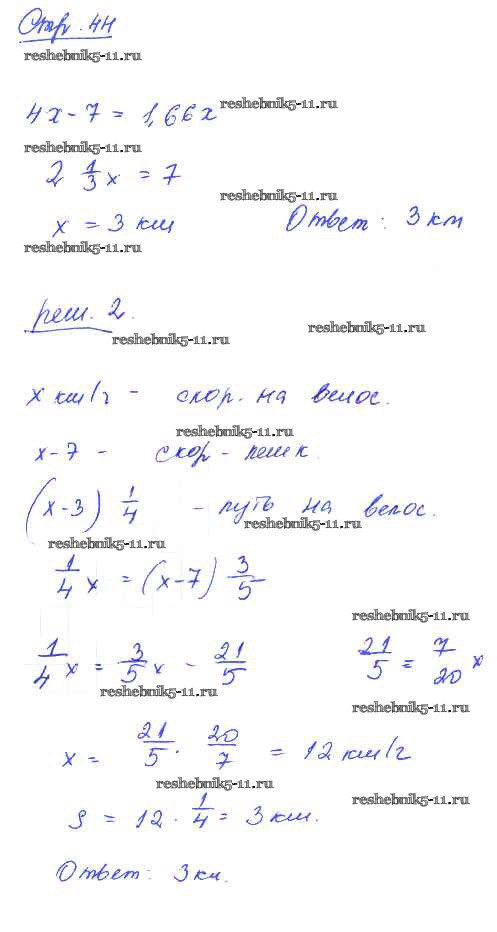 Стр. 44
reshebnik5-11.ru
4x - 7 = 1,66x reshebnik5-11.ru
reshebnik5-11.ru
2 1/3 x = 7
reshebnik5-11.ru
x = 3 км Ответ: 3 км
reshebnik5-11.ru
реш. 2.
reshebnik5-11.ru
reshebnik5-11.ru
x км/г - скор. на велос.
reshebnik5-11.ru
x - 7 - скор - пешк.
(x - 3) 1/4 - путь на велос.
reshebnik5-11.ru
reshebnik5-11.ru
1/4 x = (x - 7) 3/5
reshebnik5-11.ru
1/4 x = 3/5 x - 21/5 21/5 = 7/20 x
reshebnik5-11.ru
reshebnik5-11.ru
x = 21/5 · 20/7 = 12 км/г
reshebnik5-11.ru
reshebnik5-11.ru
S = 12 · 1/4 = 3 км.
Ответ: 3 км.